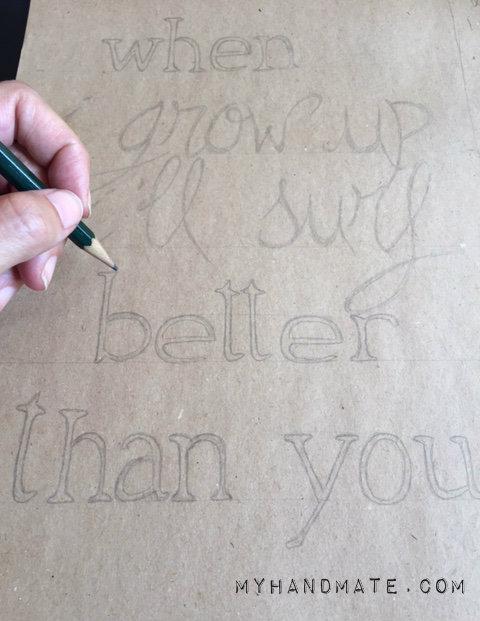 when
I grow up
I'll surf
better
than you
MYHANDMATE.COM